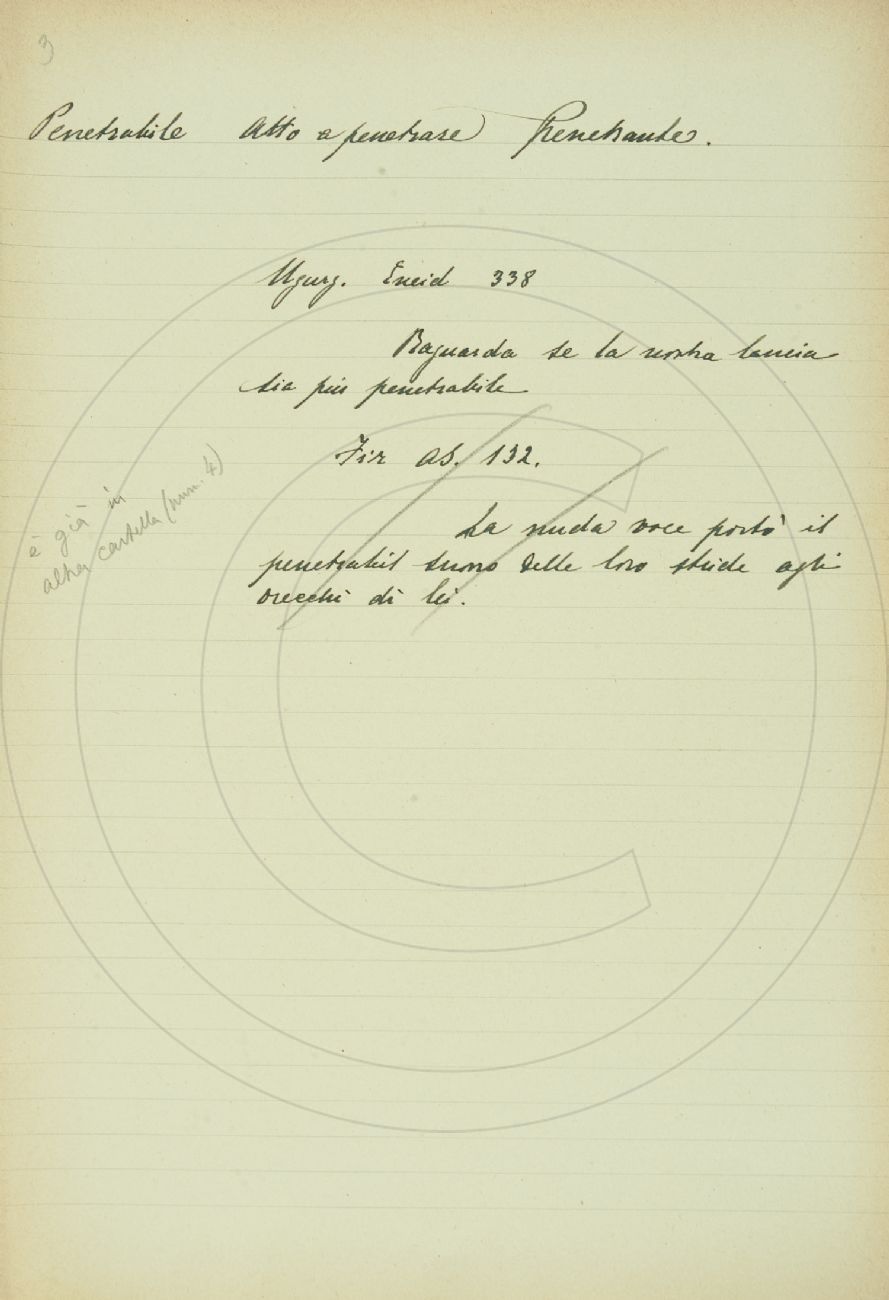 3
Penetrabile Atto a penetrare Penetrante.
Ugurg. Eneid 338
Raguarda se la nostra lancia
sia più penetrabile
Fir As. 132.
La nuda voce portò il
penetrabil suono delle loro strida agli
orecchi di lei.
è già in
altra cartella (num. 4)